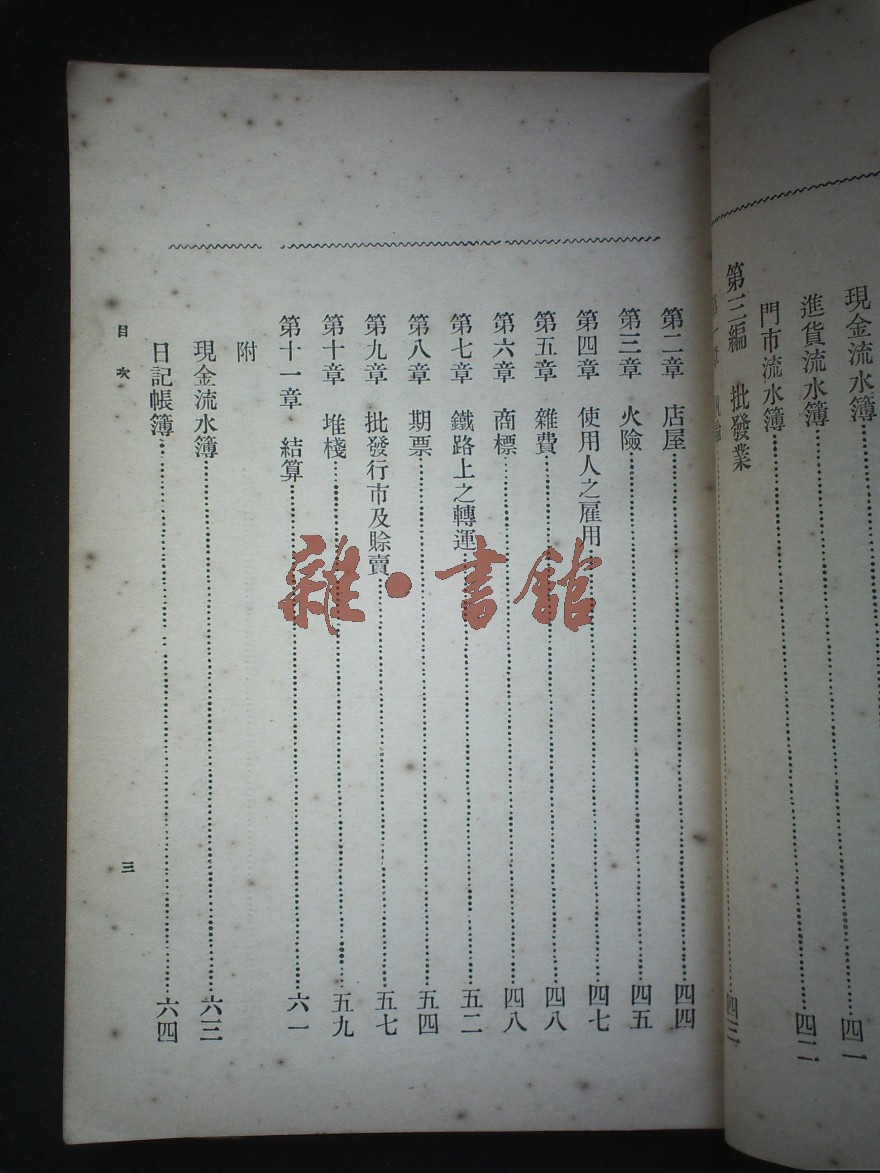 現金流水簿……四一
進貨流水簿……四二
門市流水簿
第三編 批發業……四三
第一章
第二章 店屋……四四
第三章 火險……四五
第四章 使用人之雇用……四七
第五章 雜費……四八
第六章 商標……四八
第七章 鐵路上之轉運……五二
第八章 期票……五四
第九章 批發行市及賒賣……五七
第十章 堆棧……五九
第十一章 結算……六一
附
現金流水簿……六三
日記帳簿……六四
目次
三
雜·書館